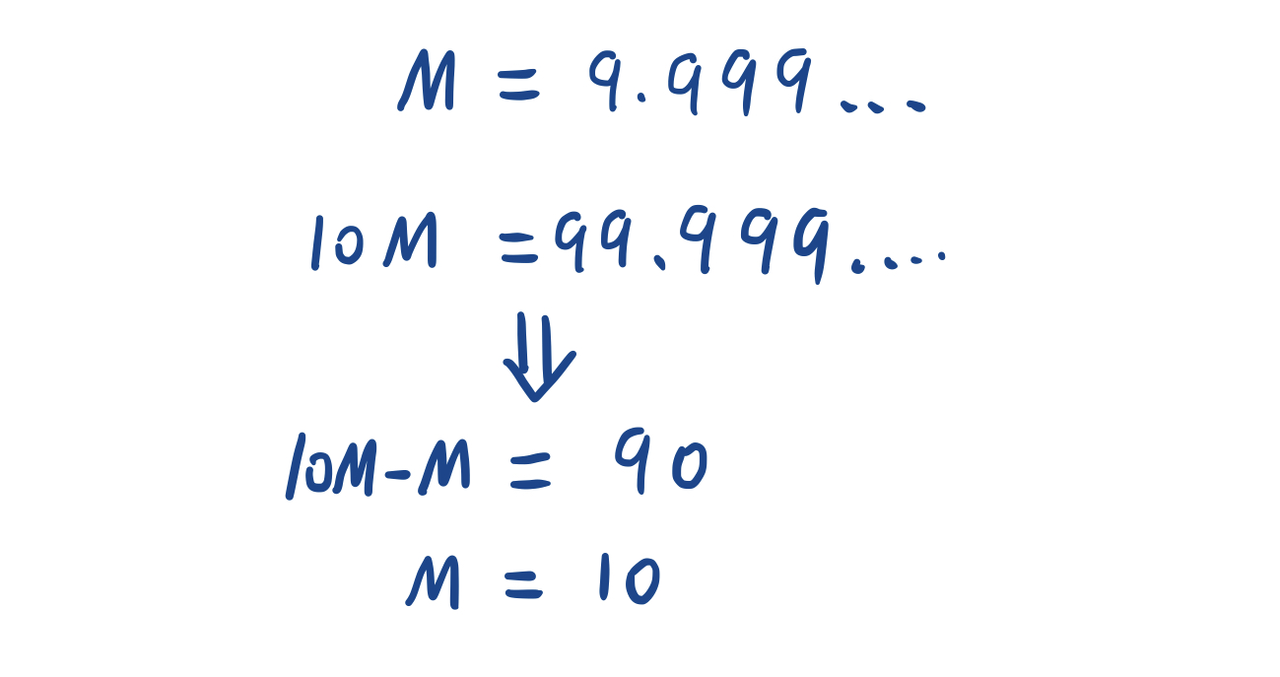 M = 9.999...
10M = 99.999....
⇓
10M-M = 90
M = 10